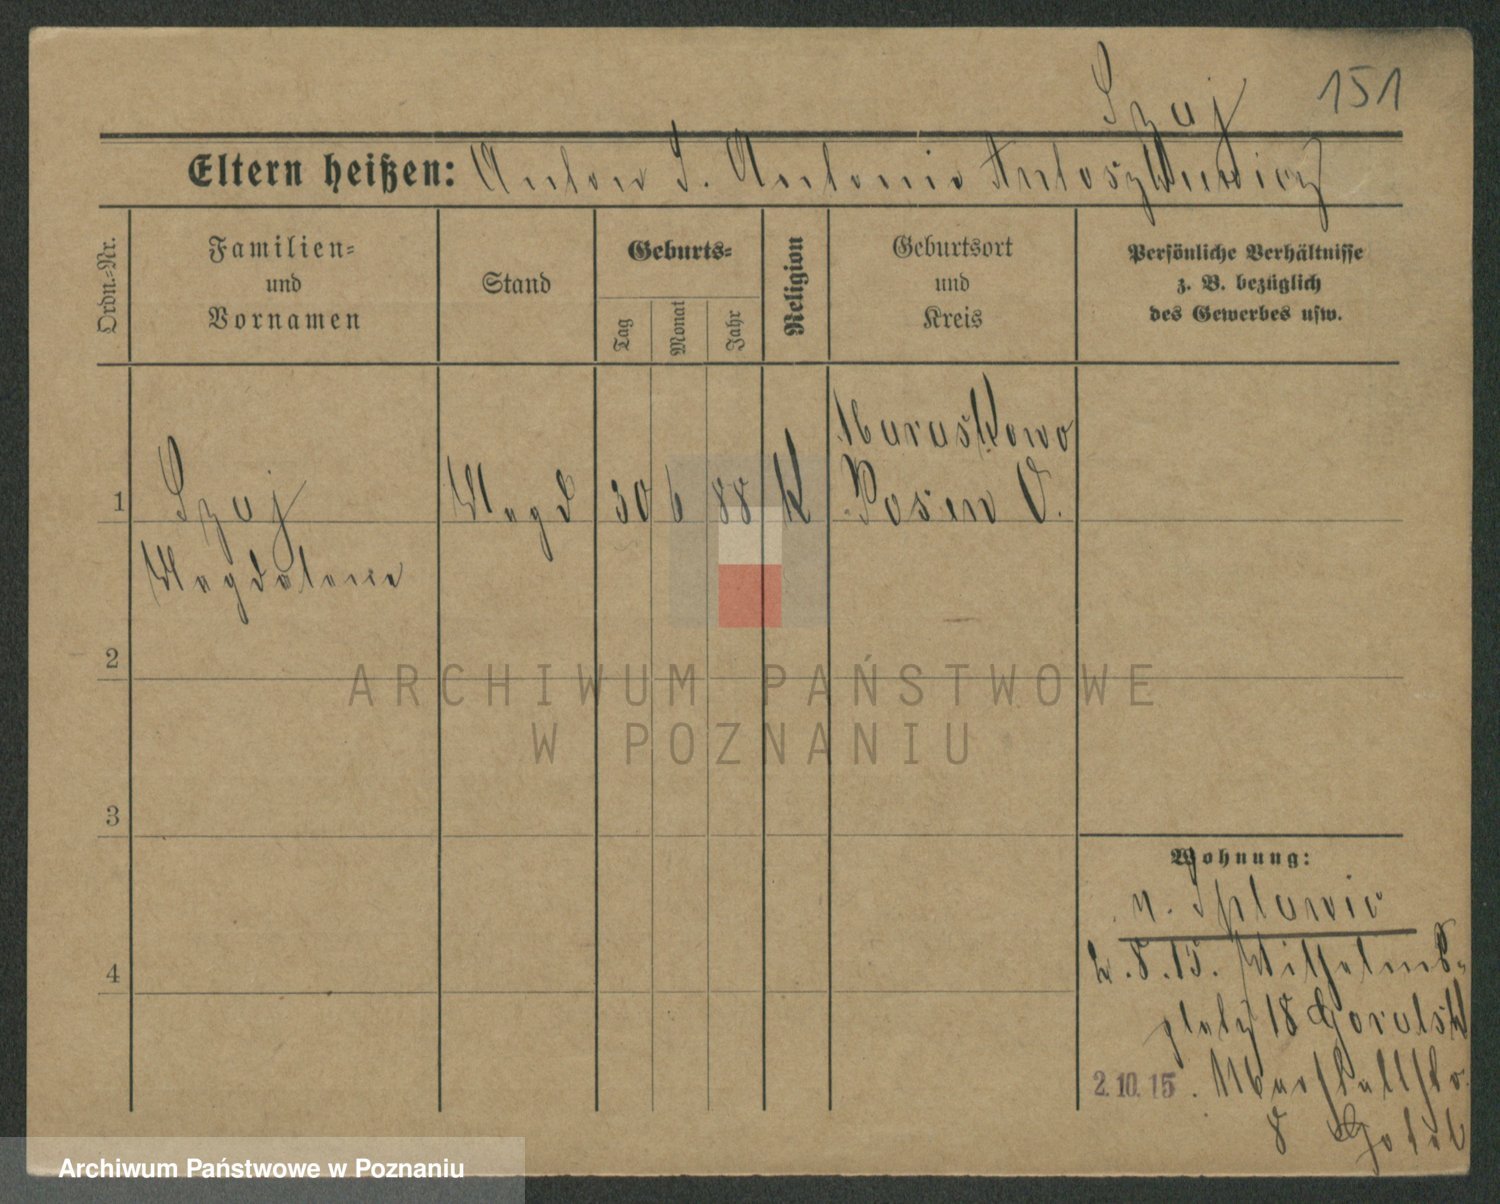 Szaj 151
Eltern heißen: Anton S. Antonie Antoszkiewicz
Ordn.=Nr.
Familien=
und
Vornamen
Stand
Geburts=
Tag
Monat
Jahr
Religion
Geburtsort
und
Kreis
Persönliche Verhältnisse
z. B. bezüglich
des Gewerbes usw.
1
Szaj
Magdalena
Magd
30
6
88
K
Maruskowo
Posen O.
2
3
4
Wohnung:
n. Splawie
2.8.15. Wilhelms-
platz 18 Goralsk
2.10.15. Marstallstr.
8
ARCHIWUM PAŃSTWOWE
W POZNANIU
Archiwum Państwowe w Poznaniu